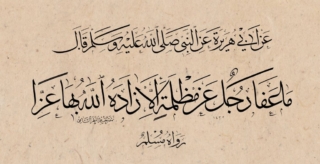 عن أبي هريرة عن النبي صلى الله عليه وسلم قال
ما عفا رجل عن مظلمة إلا زاده الله بها عزا
رواه مسلم